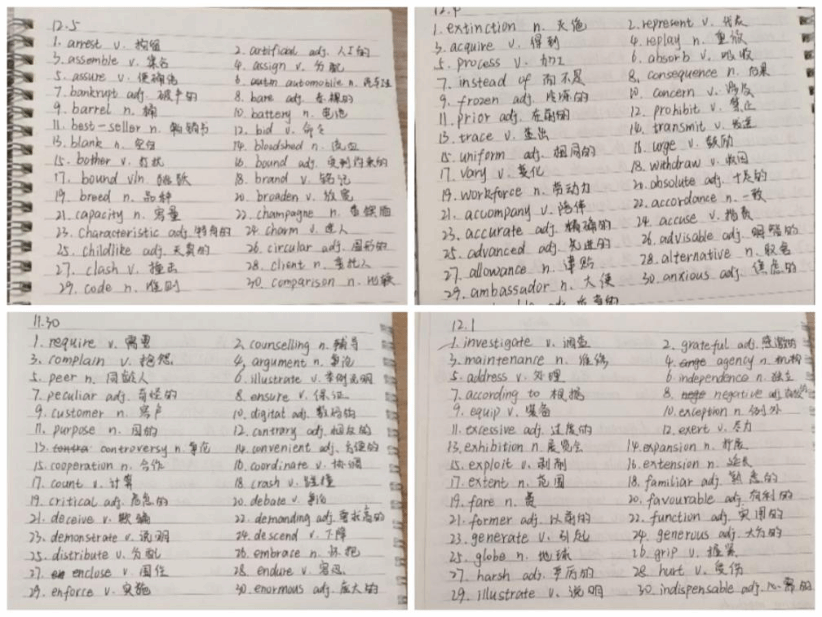 12.5
1. arrest v. 拘留 2. artificial adj. 人工的
3. assemble v. 集合 4. assign v. 分配
5. assure v. 使确信 6. automobile n. 汽车
7. bankrupt adj. 破产的 8. bare adj. 赤裸的
9. barrel n. 桶 10. battery n. 电池
11. best-seller n. 畅销书 12. bid v. 命令
13. blank n. 空白 14. bloodshed n. 流血
15. bother v. 打扰 16. bound adj. 受到约束的
17. bound v/n. 跳跃 18. brand v. 铭记
19. breed n. 品种 20. broaden v. 放宽
21. capacity n. 容量 22. champagne n. 香槟酒
23. characteristic adj. 特有的 24. charm v. 迷人
25. childlike adj. 天真的 26. circular adj. 圆形的
27. clash v. 撞击 28. client n. 委托人
29. code n. 准则 30. comparison n. 比较
12.4
1. extinction n. 灭绝 2. represent v. 代表
3. acquire v. 得到 4. replay n. 重放
5. process v. 加工 6. absorb v. 吸收
7. instead of 而不是 8. consequence n. 后果
9. frozen adj. 冷冻的 10. concern v.
11. prior adj. 在前的 12. prohibit v. 禁止
13. trace v. 查出 14. transmit v. 发送
15. uniform adj. 相同的 16. urge v. 鼓励
17. vary v. 变化 18. withdraw v. 收回
19. workforce n. 劳动力 20. absolute adj. 十足的
21. accompany v. 陪伴 22. accordance n. 一致
23. accurate adj. 精确的 24. accuse v. 指责
25. advanced adj. 先进的 26. advisable adj. 明智的
27. allowance n. 津贴 28. alternative n. 取舍
29. ambassador n. 大使 30. anxious adj. 焦虑的
11.30
1. require v. 需要 2. counselling n. 辅导
3. complain v. 抱怨 4. argument n. 争论
5. peer n. 同龄人 6. illustrate v. 举例说明
7. peculiar adj. 奇怪的 8. ensure v. 保证
9. customer n. 客户 10. digital adj. 数码的
11. purpose n. 目的 12. contrary adj. 相反的
13. controversy n. 争论 14. convenient adj. 方便的
15. cooperation n. 合作 16. coordinate v. 协调
17. count v. 计算 18. crash v. 碰撞
19. critical adj. 危急的 20. debate v. 争论
21. deceive v. 欺骗 22. demanding adj. 要求高的
23. demonstrate v. 说明 24. descend v. 下降
25. distribute v. 分配 26. embrace n. 怀抱
27. enclose v. 围住 28. endure v. 容忍
29. enforce v. 实施 30. enormous adj. 庞大的
12.1
1. investigate v. 调查 2. grateful adj. 感激的
3. maintenance n. 维修 4. agency n. 机构
5. address v. 处理 6. independence n. 独立
7. according to 根据 8. negative adj.
9. equip v. 装备 10. exception n. 例外
11. excessive adj. 过度的 12. exert v. 尽力
13. exhibition n. 展览会 14. expansion n. 扩展
15. exploit v. 剥削 16. extension n. 延长
17. extent n. 范围 18. familiar adj. 熟悉的
19. fare n. 费 20. favourable adj. 有利的
21. former adj. 以前的 22. function adj. 实用的
23. generate v. 引起 24. generous adj. 大方的
25. globe n. 地球 26. grip v. 握紧
27. harsh adj. 严厉的 28. hurt v. 受伤
29. illustrate v. 说明 30. indispensable adj. 必需的